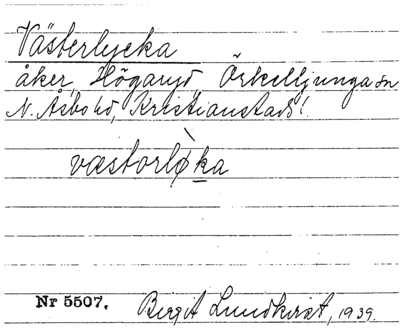 Västerlycka
åker, Höganyd, Örkelljunga sn
N. Åsbo hd, Kristianstads l.
væstorlø̀ka
Nr 5507. Birgit Lundkvist, 1939.